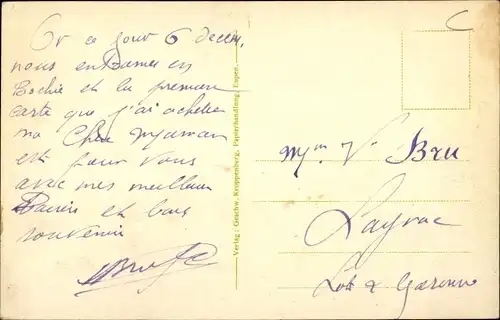 ce jour 6 decem,
nous
et la premiere
carte que j'ai achetée
ma Chère Maman
est pour vous
avec mes meilleurs
Baisers et bons
souvenir
Verlag: Geschw. Kroppenberg, Papierhandlung, Eupen.
C
Mme V. Bru
Layrac
Lot & Garonne